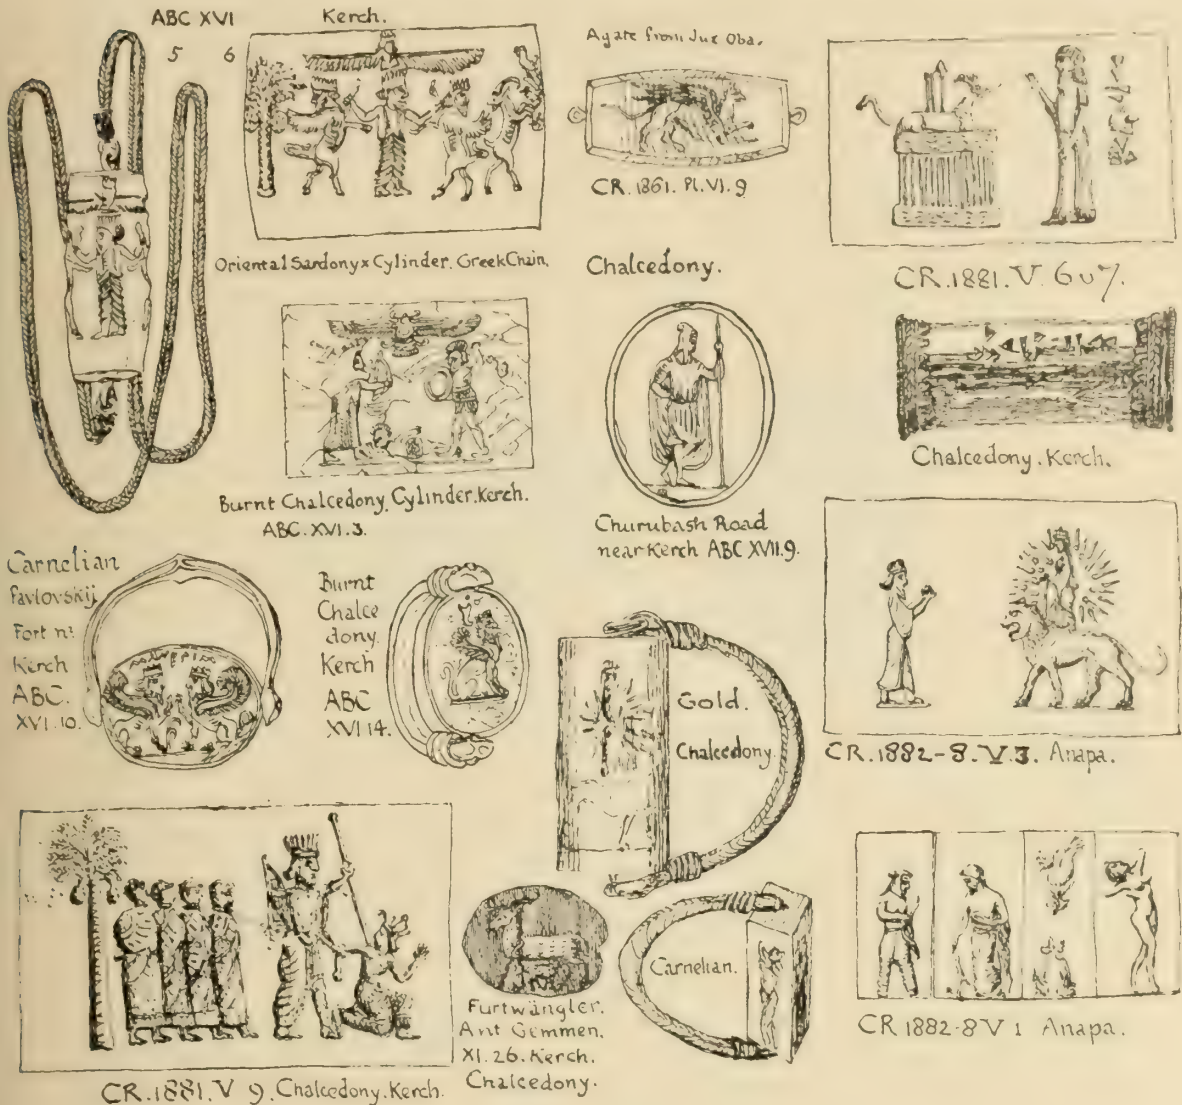 ABC XVI
5 6
Kerch.
Oriental Sardonyx Cylinder. Greek Chain.
Agate from Juz Oba.
CR. 1861. Pl. VI. 9
CR. 1881. V. 6 u 7.
Chalcedony. Kerch.
Burnt Chalcedony, Cylinder. Kerch.
ABC. XVI. 3.
Chalcedony.
Churubash Road
near Kerch ABC XVII. 9.
Carnelian
Pavlovskij
Fort nr
Kerch
ABC.
XVI. 10.
Burnt
Chalce
dony.
Kerch
ABC
XVI 14.
Gold.
Chalcedony.
CR. 1882-8. V. 3. Anapa.
CR. 1881. V 9. Chalcedony. Kerch.
Furtwängler.
Ant Gemmen.
XI. 26. Kerch.
Chalcedony.
Carnelian.
CR 1882-8 V 1 Anapa.